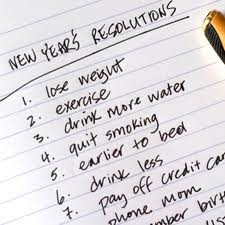 NEW YEAR'S RESOLUTIONS
1. lose weight
2. exercise
3. drink more water
4. quit smoking
5. earlier to bed
6. drink less
7. pay off credit car
phone mom
member birth